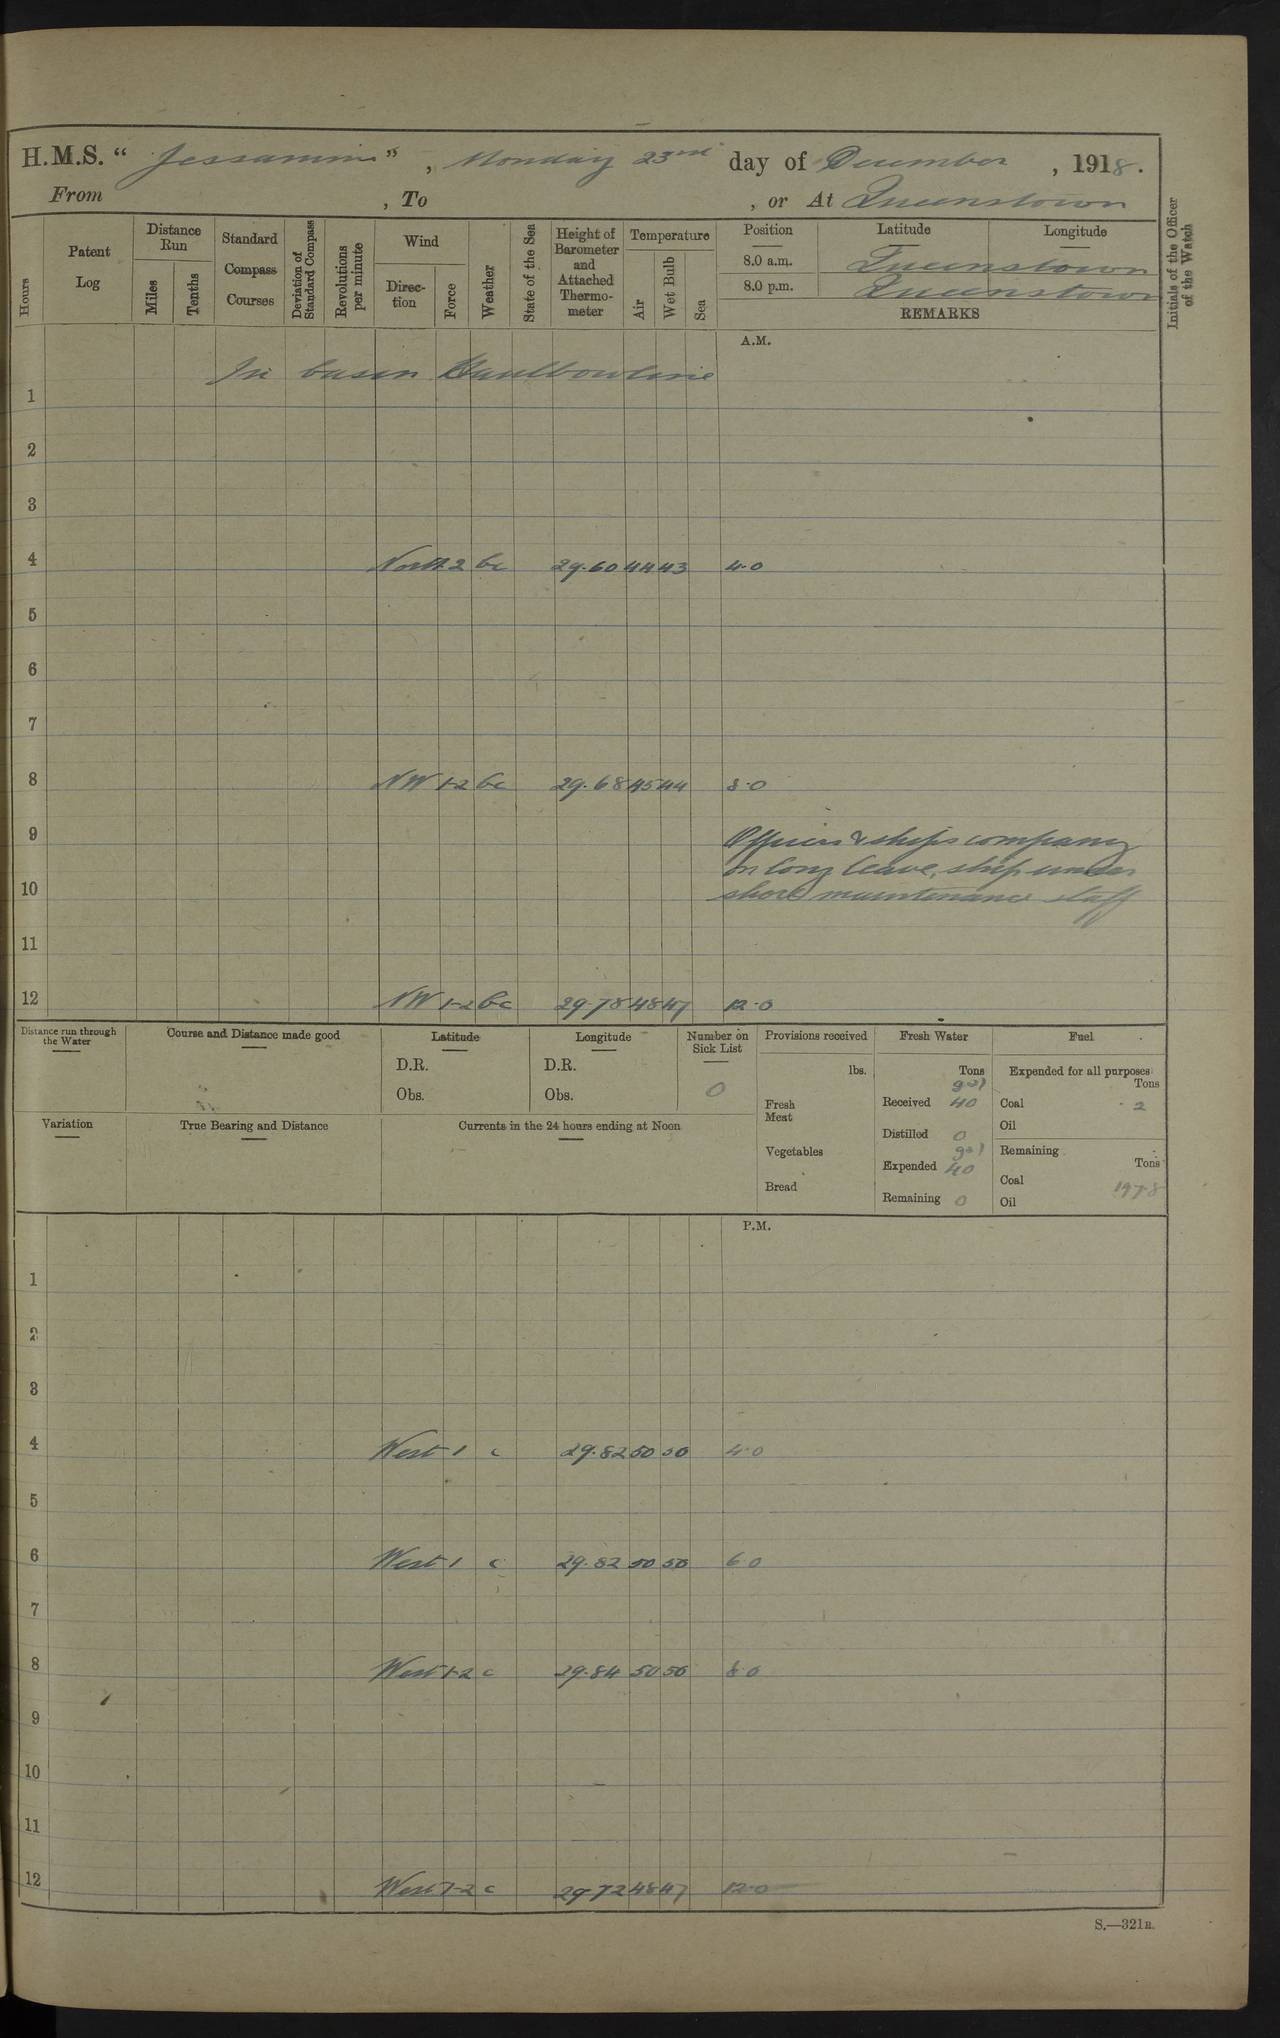 H.M.S. “ Jessamine ” , Monday 23rd day of December , 1918 .
From , To , or At Queenstown
Hours
Patent Log
Distance Run
Miles
Tenths
Standard Compass Courses
Deviation of Standard Compass
Revolutions per minute
Wind
Direction
Force
Weather
State of the Sea
Height of Barometer and Attached Thermometer
Temperature
Air
Wet Bulb
Sea
Position Latitude Longitude
8.0 a.m. Queenstown
8.0 p.m. Queenstown
REMARKS
Initials of the Officer of the Watch
A.M.
In basin Haulbowline
1
2
3
4 North 2 bc 29.60 44 43 4.0
5
6
7
8 NW 1-2 bc 29.68 45 44 8.0
9 Officers & ships company
on long leave, ship under
10 shore maintenance staff
11
12 NW 1-2 bc 29.78 48 47 12.0
Distance run through the Water
Course and Distance made good
Latitude
D.R.
Obs.
Longitude
D.R.
Obs.
Number on Sick List
0
Provisions received
lbs.
Fresh Meat
Vegetables
Bread
Fresh Water
Tons
gal
Received 40
Distilled 0
gal
Expended 40
Remaining 0
Fuel
Expended for all purposes
Tons
Coal 2
Oil
Remaining
Tons
Coal 197.8
Oil
Variation
True Bearing and Distance
Currents in the 24 hours ending at Noon
P.M.
1
2
3
4 West 1 c 29.82 50 50 4.0
5
6 West 1 c 29.82 50 50 6.0
7
8 West 1-2 c 29.84 50 50 8.0
9
10
11
12 West 1-2 c 29.72 48 47 12.0
S.—321B.